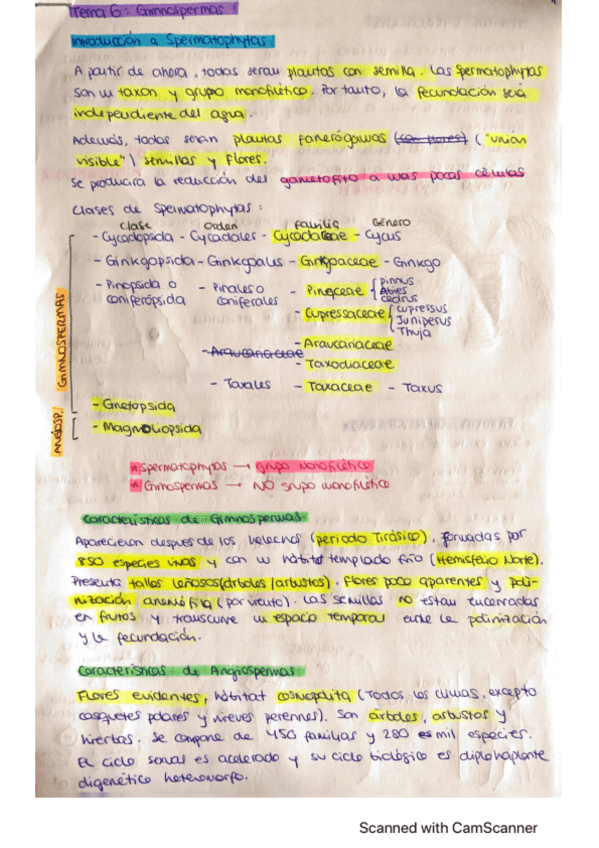 Tema 6: Gimnospermas
Introducción a Spermatophytas
A partir de ahora, todas serán plantas con semilla. Las Spermatophytas
son un taxón y grupo monofilético. Por tanto, la fecundación será
independiente del agua.
Además, todas serán plantas fanerógamas (con flores) ("unión
visible") semillas y flores.
Se producirá la reducción del gametofito a unas pocas células
Clases de Spermatophytas:
Clase Orden Familia Género
- Cycadopsida - Cycadales - Cycadaceae - Cycus
- Ginkgopsida - Ginkgoalus - Ginkgoaceae - Ginkgo
- Pinopsida o coniferópsida - Pinales o coniferales - Pinaceae { Pinnus
Abies
Cedrus
- Cupressaceae { Cupressus
Juniperus
Thuja
- Araucariaceae
- Araucariaceae
- Taxodiaceae
- Taxales - Taxaceae - Taxus
- Gnetopsida
- Magnoliopsida
GIMNOSPERMAS
ANGIOSP.
* Spermatophytas → grupo monofilético
* Gimnospermas → NO grupo monofilético
Características de Gimnospermas.
Aparecieron después de los helechos (periodo Tirásico), formadas por
850 especies vivas y con un hábitat templado frío (Hemisferio Norte).
Presenta tallos leñosos (árboles/arbustos). Flores poco aparentes y poli-
nización anemófila (por viento). Las semillas no están encerradas
en frutos y transcurre un espacio temporal entre la polinización
y la fecundación.
Características de Angiospermas
Flores evidentes, hábitat cosmopolita (Todos los climas, excepto
casquetes polares y nieves perennes). Son árboles, arbustos y
hierbas. Se compone de 450 familias y 280 mil especies.
El ciclo sexual es acelerado y su ciclo biológico es diplohaplonte
digenético heteromorfo.
Scanned with CamScanner